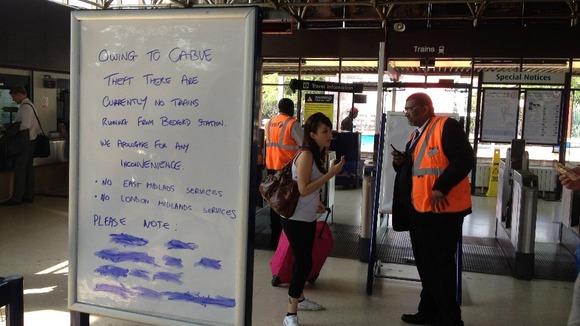 OWING TO CABLE
THEFT THERE ARE
CURRENTLY NO TRAINS
RUNNING FROM BEDFORD STATION.
WE APOLOGISE FOR ANY
INCONVENIENCE.
• NO EAST MIDLANDS SERVICES
• NO LONDON MIDLANDS SERVICES
PLEASE NOTE:
Trains
Travel Information
Special Notices